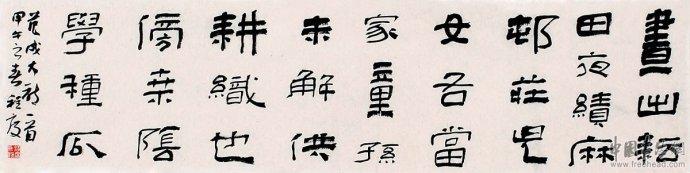 晝出耘
田夜績麻
邨莊兒
女各當
家童孫
未解供
耕織也
傍桒陰
學種瓜
范成大詩一首
甲午之春
freehead.com